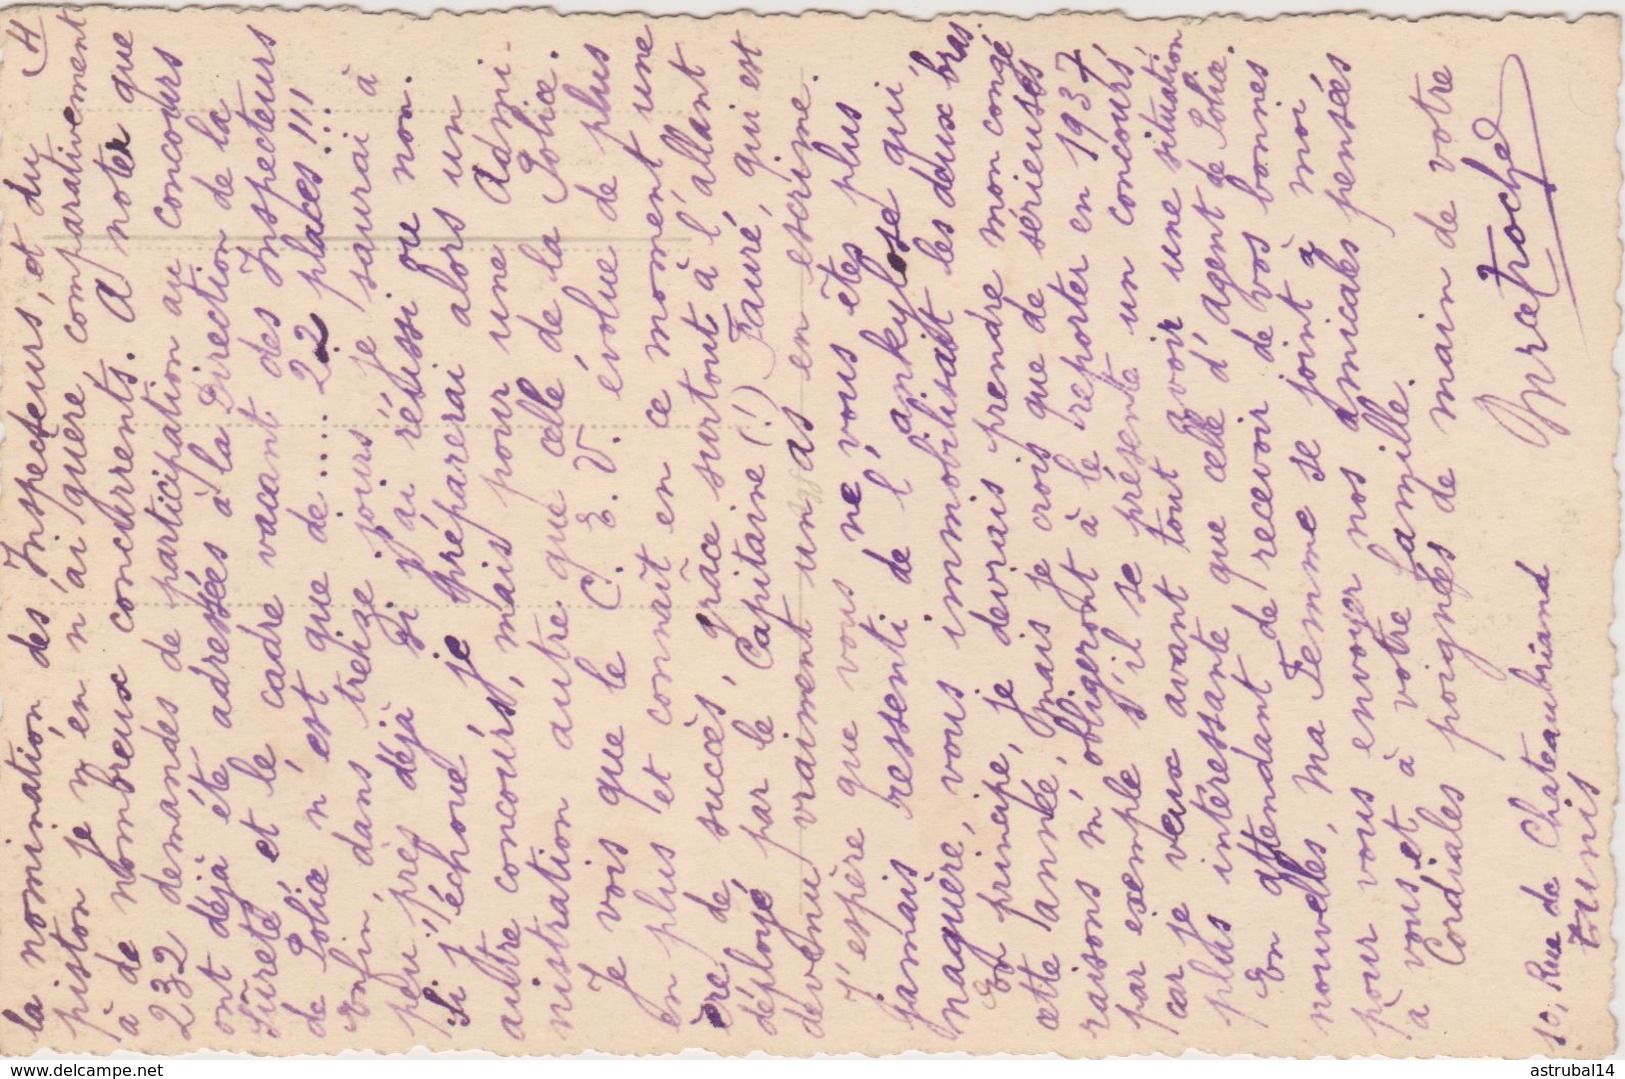 4
la nomination des Inspecteurs, et du
piston je n'en n'ai guère comparativement
à de nombreux concurrents. A noter que
232 demandes de participation au concours
ont déjà été adressées à la Direction de la
Sûreté et le cadre vacant des Inspecteurs
de Police n'est que de .... 22 places !!!
Enfin, dans treize jours je saurai à
peu près déjà si j'ai réussi ou non.
Si j'échoue je préparerai alors un
autre concours, mais pour une Admi-
nistration autre que celle de la Police.
Je vois que le C. E. V. évolue de plus
en plus et connait en ce moment une
ère de succès, grâce surtout à l'allant
déployé par le Capitaine (!) Fauré, qui est
devenu vraiment un as en escrime.
J'espère que vous ne vous êtes plus
jamais ressenti de l'ankylose qui
naguère, vous immobilisait les deux bras.
En principe, je devrais prendre mon congé
cette année, mais je crois que de sérieuses
raisons m'obligeront à le reporter en 1937
par exemple s'il se présente un concours
car je veux avant tout avoir une situation
plus intéressante que celle d'agent de Police.
En attendant de recevoir de vos bonnes
nouvelles, ma Femme se joint à moi
pour vous envoyer nos amicales pensées
à vous et à votre famille.
Cordiales poignées de main de votre
10, Rue de Chateaubriand
Tunis
astrubal14
delcampe.net